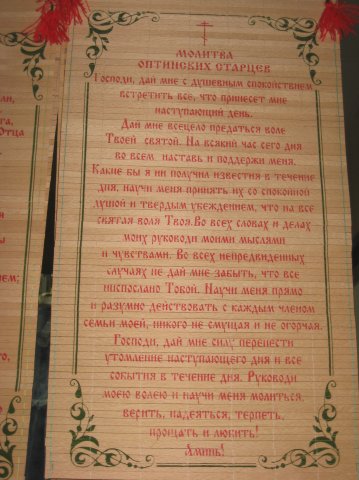 МОЛИТВА
ОПТИНСКИХ СТАРЦЕВ
Господи, дай мне с душевным спокойствием
встретить все, что принесет мне
наступающий день.
Дай мне всецело предаться воле
Твоей святой. На всякий час сего дня
во всем наставь и поддержи меня.
Какие бы я ни получил известия в течение
дня, научи меня принять их со спокойной
душой и твердым убеждением, что на все
святая воля Твоя.Во всех словах и делах
моих руководи моими мыслями
и чувствами. Во всех непредвиденных
случаях не дай мне забыть, что все
ниспослано Тобой. Научи меня прямо
и разумно действовать с каждым членом
семьи моей, никого не смущая и не огорчая.
Господи, дай мне силу перенести
утомление наступающего дня и все
события в течение дня. Руководи
моею волею и научи меня молиться,
верить, надеяться, терпеть,
прощать и любить!
Аминь!